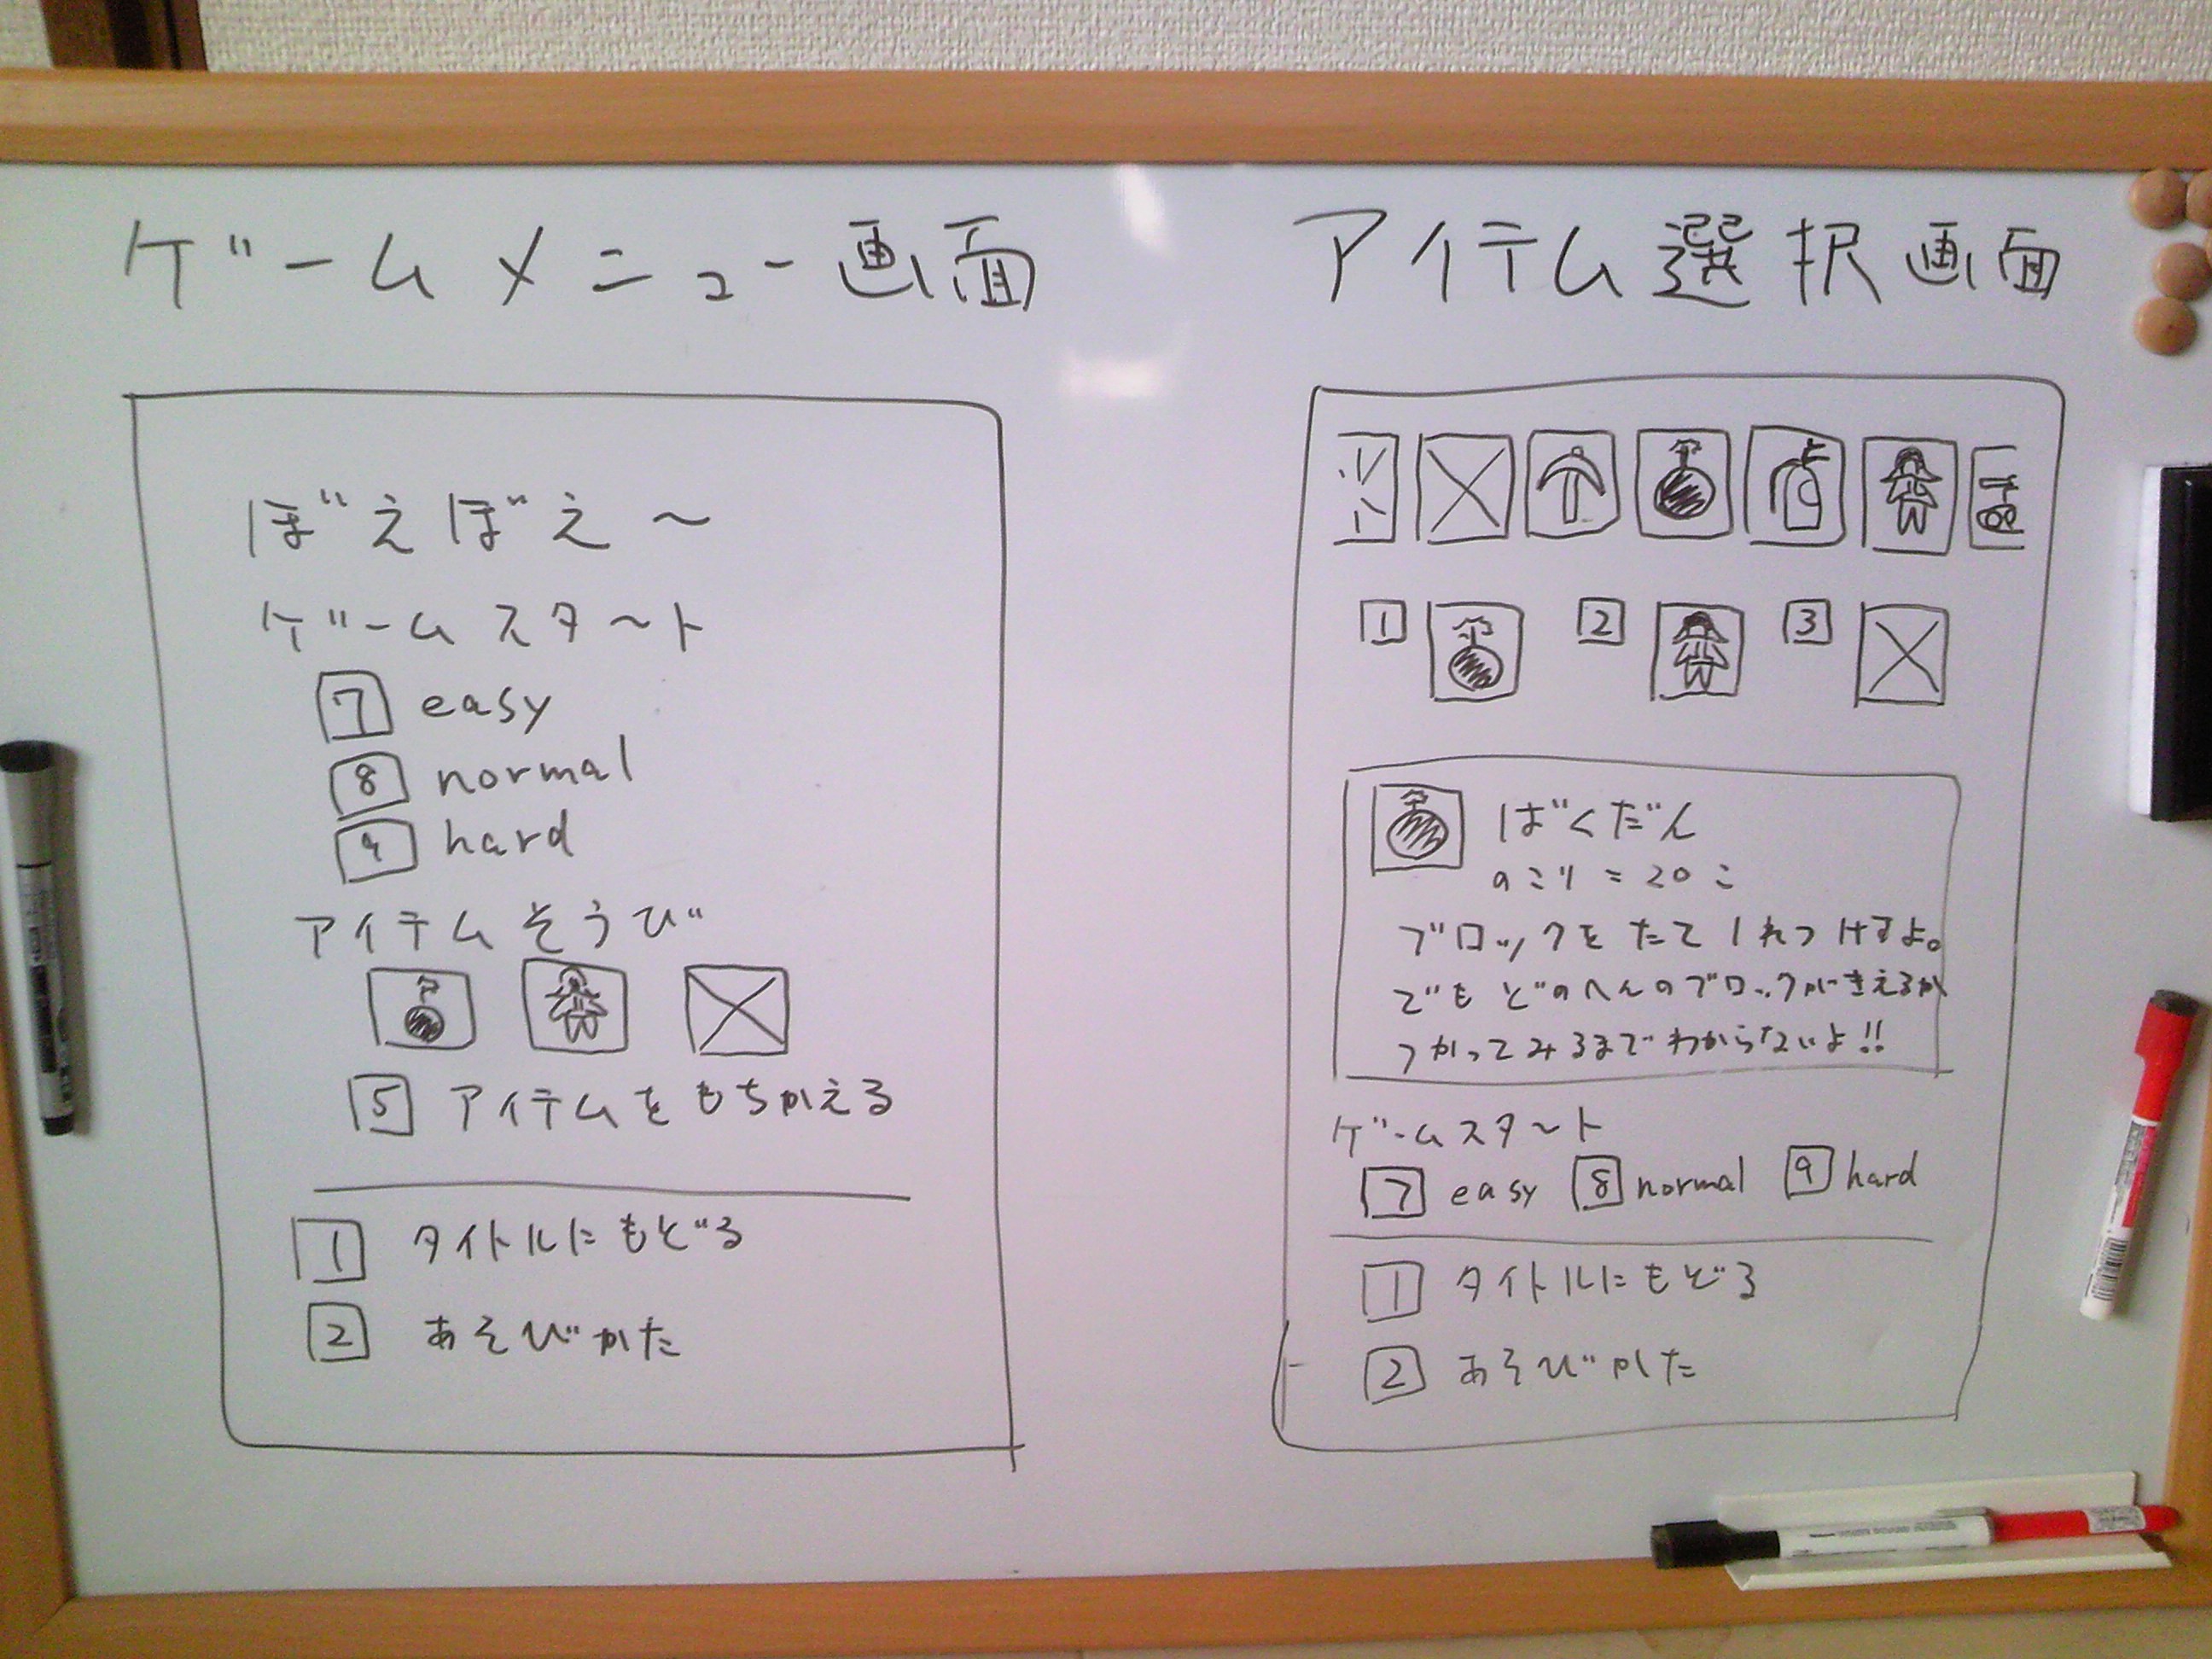 ゲームメニュー画面
ぼえぼえ〜
ゲームスタート
7 easy
8 normal
9 hard
アイテムそうび
5 アイテムをもちかえる
1 タイトルにもどる
2 あそびかた
アイテム選択画面
1 2 3
ばくだん
のこり=20こ
ブロックをたて1れつけすよ。
でもどのへんのブロックがきえるか
つかってみるまでわからないよ!!
ゲームスタート
7 easy 8 normal 9 hard
1 タイトルにもどる
2 あそびかた